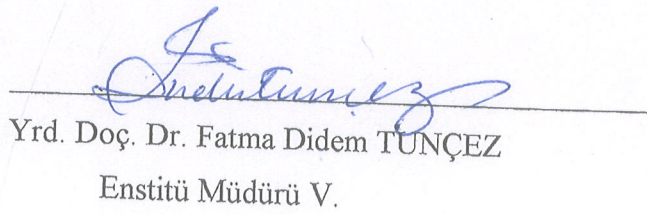 Yrd. Doç. Dr. Fatma Didem TUNÇEZ
Enstitü Müdürü V.